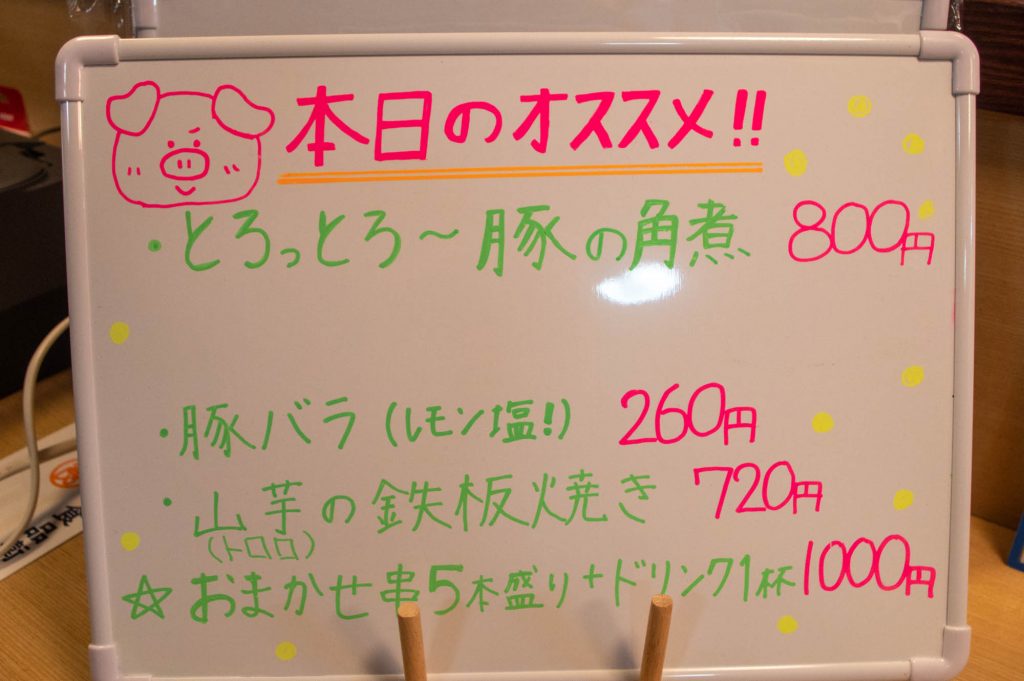 本日のオススメ!!
・とろっとろ〜豚の角煮 800円
・豚バラ(レモン塩!) 260円
・山芋の鉄板焼き 720円
(トロロ)
☆おまかせ串5本盛り+ドリンク1杯 1000円